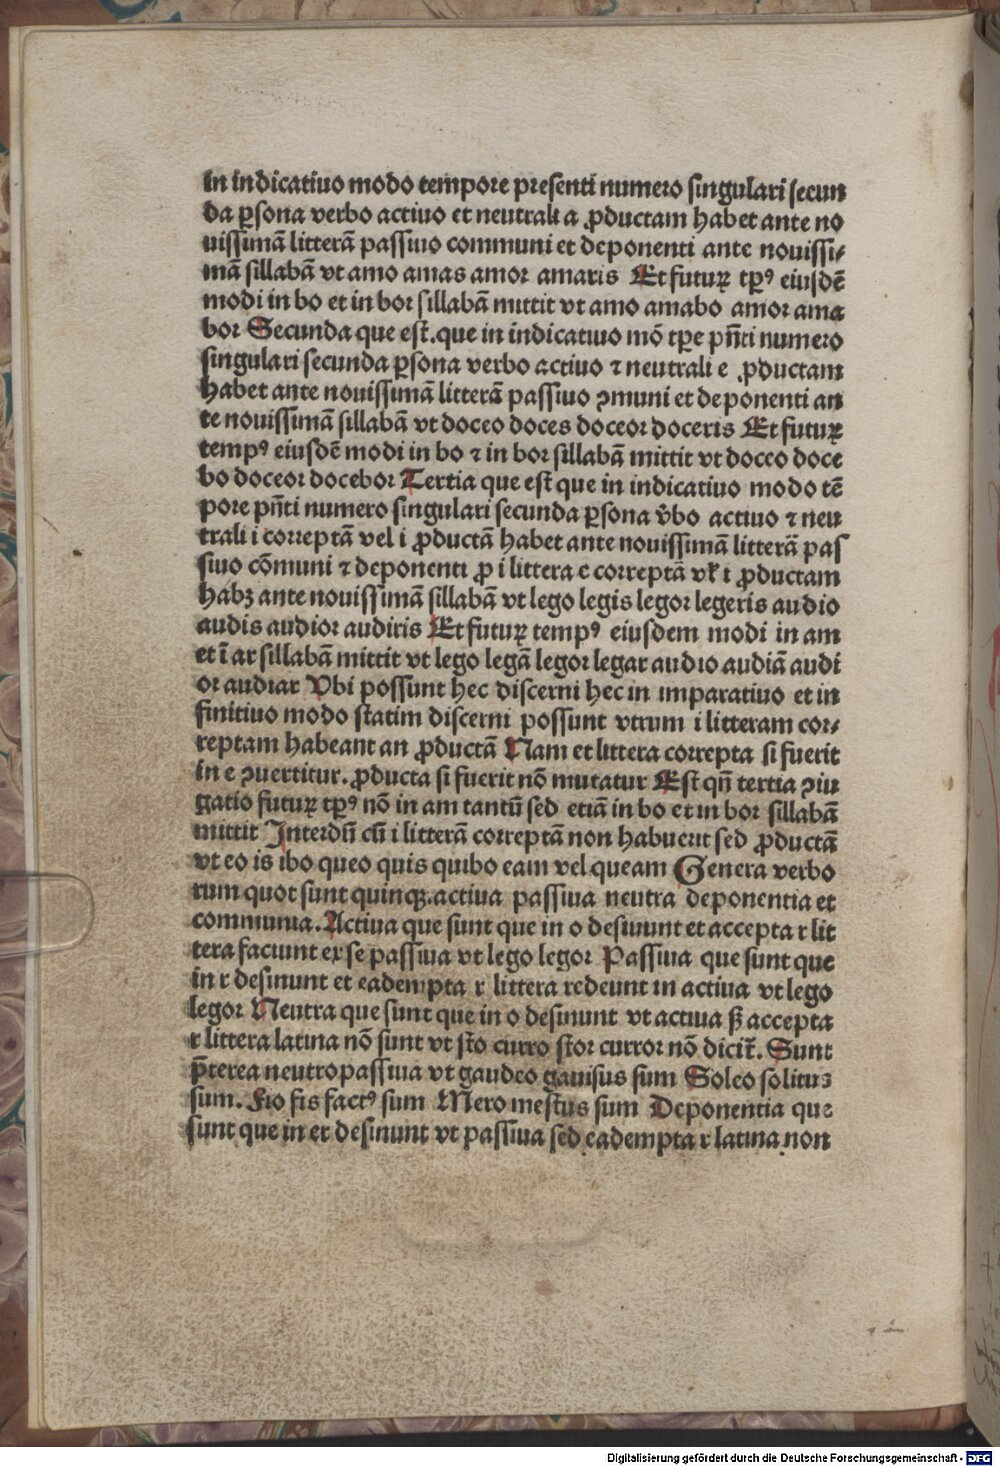 in indicatiuo modo tempore presenti numero singulari secun
da ꝑsona verbo actiuo et neutrali a ꝓductam habet ante no
uissimā litterā passiuo communi et deponenti ante nouissi-
mā sillabā vt amo amas amor amaris Et futuꝝ tꝑꝰ eiusdē
modi in bo et in bor sillabā mittit vt amo amabo amor ama
bor Secunda que est.que in indicatiuo mō tꝑe pn̄ti numero
singulari secunda ꝑsona verbo actiuo ⁊ neutrali e ꝓductam
habet ante nouissimā litterā passiuo ꝯmuni et deponenti an
te nouissimā sillabā vt doceo doces doceor doceris Et futuꝝ
tempꝰ eiusdē modi in bo ⁊ in bor sillabā mittit vt doceo doce
bo doceor docebor Tertia que est que in indicatiuo modo tē
pore pn̄ti numero singulari secunda ꝑsona v̄bo actiuo ⁊ neu
trali i correptā vel i ꝓductā habet ante nouissimā litterā pas
siuo cōmuni ⁊ deponenti ꝓ i littera e correptā vł i ꝓductam
habꝫ ante nouissimā sillabā vt lego legis legor legeris audio
audis audior audiris Et futuꝝ tempꝰ eiusdem modi in am
et ī ar sillabā mittit vt lego legā legor legar audio audiā audi
or audiar Vbi possunt hec discerni hec in imparatiuo et in
finitiuo modo statim discerni possunt vtrum i litteram cor-
reptam habeant an ꝓductā Nam et littera correpta si fuerit
in e ꝯuertitur.ꝓducta si fuerit nō mutatur Est qn̄ tertia ꝯiu
gatio futuꝝ tꝑꝰ nō in am tantū sed etiā in bo et in bor sillabā
mittit Interdū cū i litterā correptā non habuerit sed ꝓductā
vt eo is ibo queo quis quibo eam vel queam Genera verbo
rum quot sunt quinqꝫ.actiua passiua neutra deponentia et
communia.Actiua que sunt que in o desinunt et accepta r lit
tera faciunt ex se passiua vt lego legor Passiua que sunt que
in r desinunt et eadempta r littera redeunt in actiua vt lego
legor Neutra que sunt que in o desinunt vt actiua sꝫ accepta
r littera latina nō sunt vt sto curro stor curror nō dicit̄. Sunt
p̄terea neutropassiua vt gaudeo gauisus sum Soleo solitus
sum. Fio fis factꝰ sum Mereo mestus sum Deponentia que
sunt que in er desinunt vt passiua sed eadempta r latina non
Digitalisierung gefördert durch die Deutsche Forschungsgemeinschaft - DFG